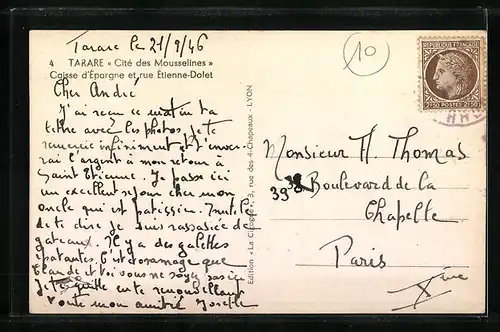 Tarare le 21/9/46
4 TARARE « Cité des Mousselines »
Caisse d'Épargne et rue Étienne-Dolet
Cher André
J'ai reçu ce matin ta
lettre avec les photos je te
remercie infiniment et t'enver
rai l'argent à mon retour à
Saint Etienne. Je passe ici
un excellent séjour chez mon
oncle qui est patissier. Inutile
de te dire je suis rassasiée de
gateaux. Il y a des galettes
épatantes. C'est dommage que
et toi vous ne soyez pas ici
Je te quitte en te renouvellant
toute mon amitié Josette
Edition « La Cigogne », 3, rue des 4-Chapeaux - LYON
10
REPUBLIQUE FRANÇAISE
2F50 POSTES 2F50
Monsieur A. Thomas
39 Boulevard de la
Chapelle
Paris
Xème